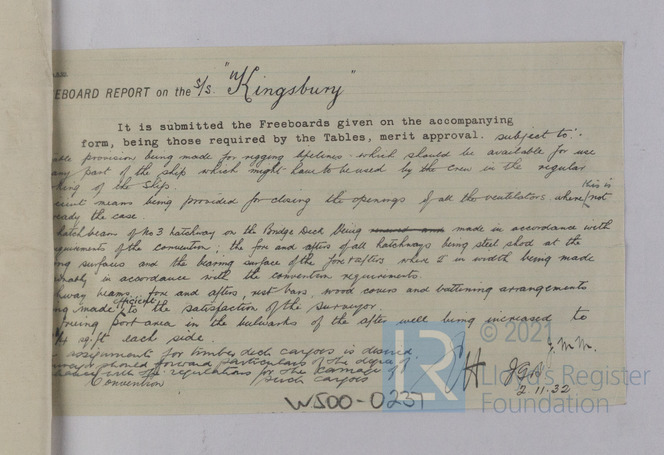 EBOARD REPORT on the S/S. "Kingsbury"
It is submitted the Freeboards given on the accompanying
form, being those required by the Tables, merit approval. subject to:-
able provision being made for rigging lifelines which should be available for use
any part of the ship which might have to be used by the crew in the regular
king of the Ship.
cient means being provided for closing the openings of all the ventilators, where this is not
ready the case.
hatch beams of No 3 hatchway on the Bridge Deck being made in accordance with
quirements of the convention; the fore and afters of all hatchways being steel shod at the
ng surfaces and the bearing surface of the fore & afters where in width being made
in accordance with the convention requirements.
hway beams, fore and afters, rest bars, wood covers and battening arrangements
ng made efficient to the satisfaction of the surveyor.
freeing port area in the bulwarks of the after well being increased to
sq.ft each side.
assignments for timber deck cargoes is desired
should forward particulars of the degree of
with the regulations for the carriage of
Convention such cargoes
J.M.M.
2.11.32
W500-0237
© 2021
LR
Lloyd's Register
Foundation